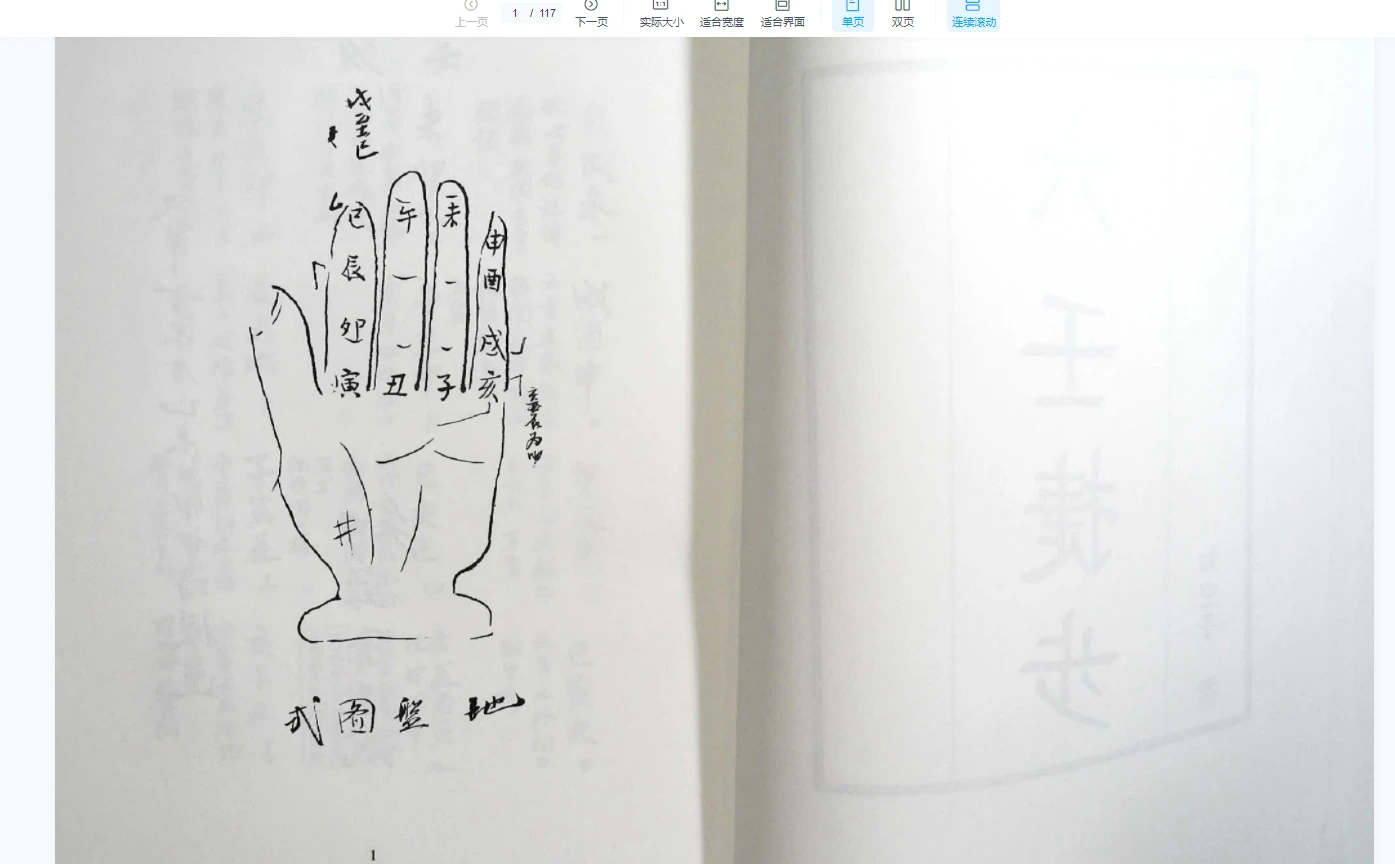 上一页
1 / 117
下一页
实际大小
适合宽度
适合界面
单页
双页
连续滚动
戌至巳
巳 午 未 申
辰 酉
卯 戌
寅 丑 子 亥
井
地盤圖式
六壬捷步
1